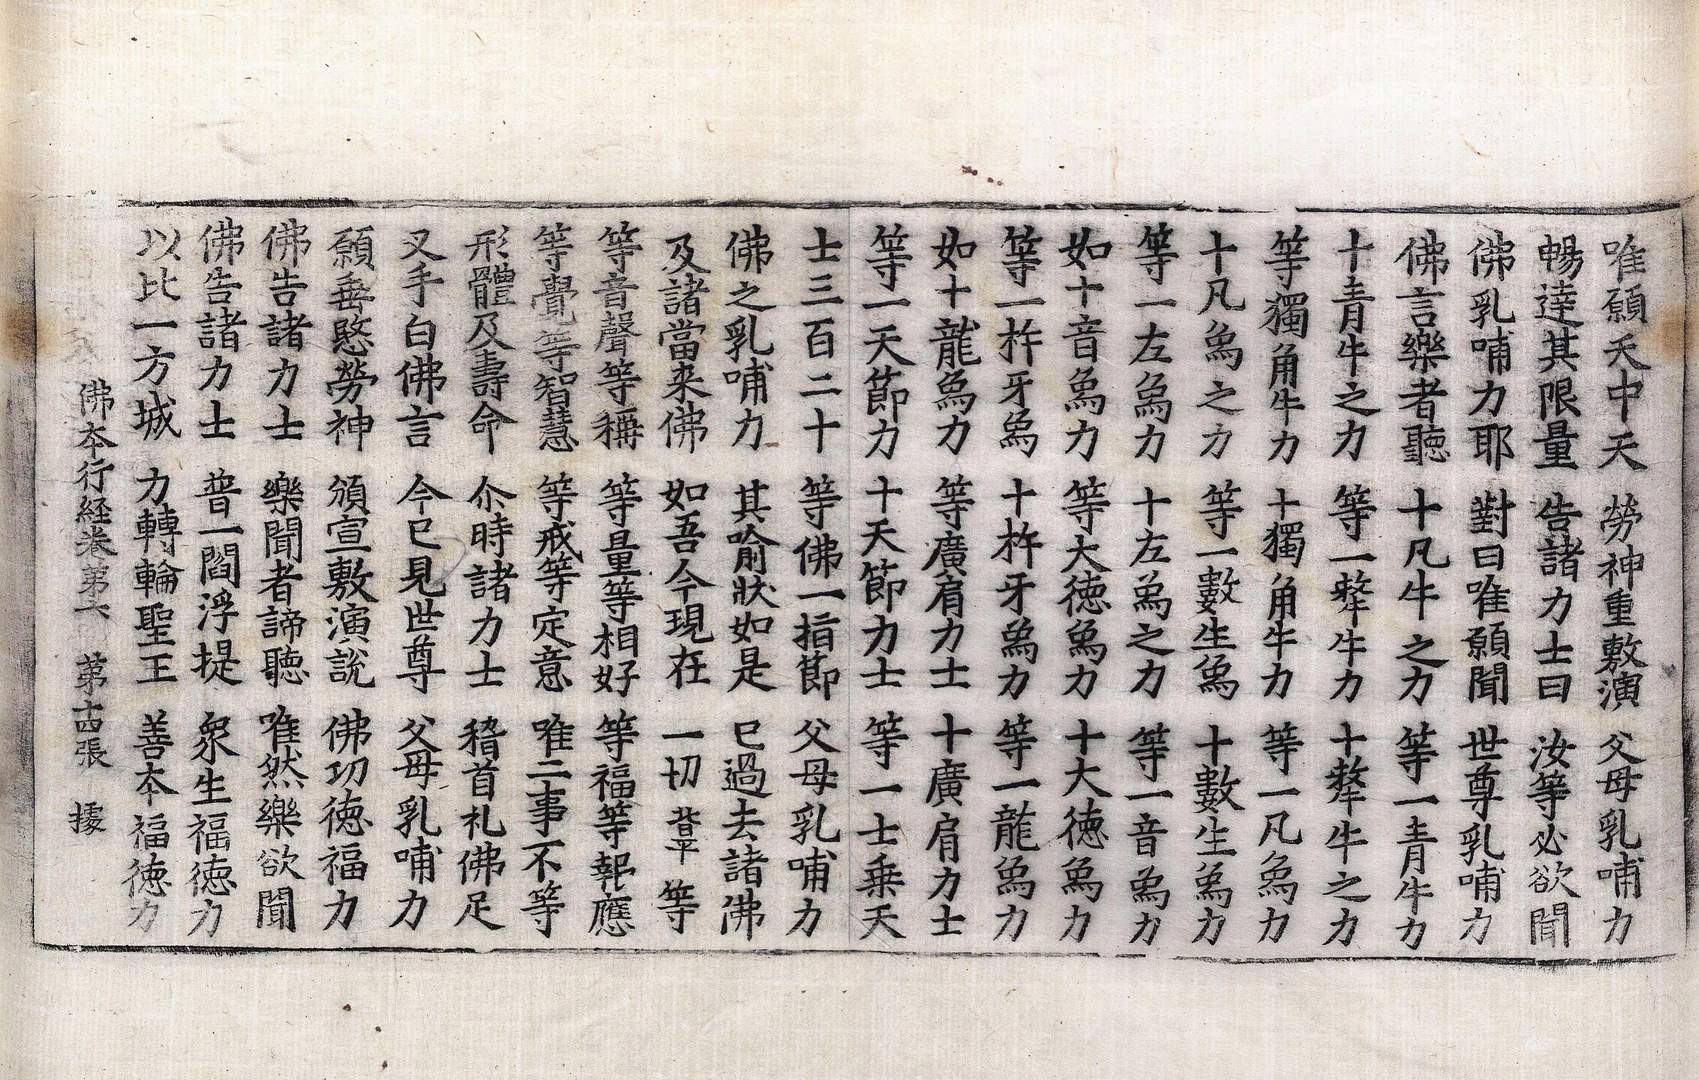 唯願天中天 勞神重敷演 父母乳哺力
暢達其限量 告諸力士曰 汝等必欲聞
佛乳哺力耶 對曰唯願聞 世尊乳哺力
佛言樂者聽 十凡牛之力 等一青牛力
十青牛之力 等一犛牛力 十犛牛之力
等獨角牛力 十獨角牛力 等一凡爲力
十凡爲之力 等一數生爲 十數生爲力
等一左爲力 十左爲之力 等一音爲力
如十音爲力 等大徳爲力 十大徳爲力
等一杵牙爲 十杵牙爲力 等一龍爲力
如十龍爲力 等廣肩力士 十廣肩力士
等一天節力 十天節力士 等一士乗天
士三百二十 等佛一指節 父母乳哺力
佛之乳哺力 其喻狀如是 已過去諸佛
及諸當来佛 如吾今現在 一切 等
等音聲等稱 等量等相好 等福等報應
等覺等智慧 等戒等定意 唯二事不等
形體及壽命 尒時諸力士 稽首礼佛足
叉手白佛言 今已見世尊 父母乳哺力
願垂愍勞神 頒宣敷演說 佛功徳福力
佛告諸力士 樂聞者諦聽 唯然樂欲聞
佛告諸力士 普一閻浮提 衆生福徳力
以比一方城 力轉輪聖王 善本福徳力
佛本行経卷第六 第十四張 據